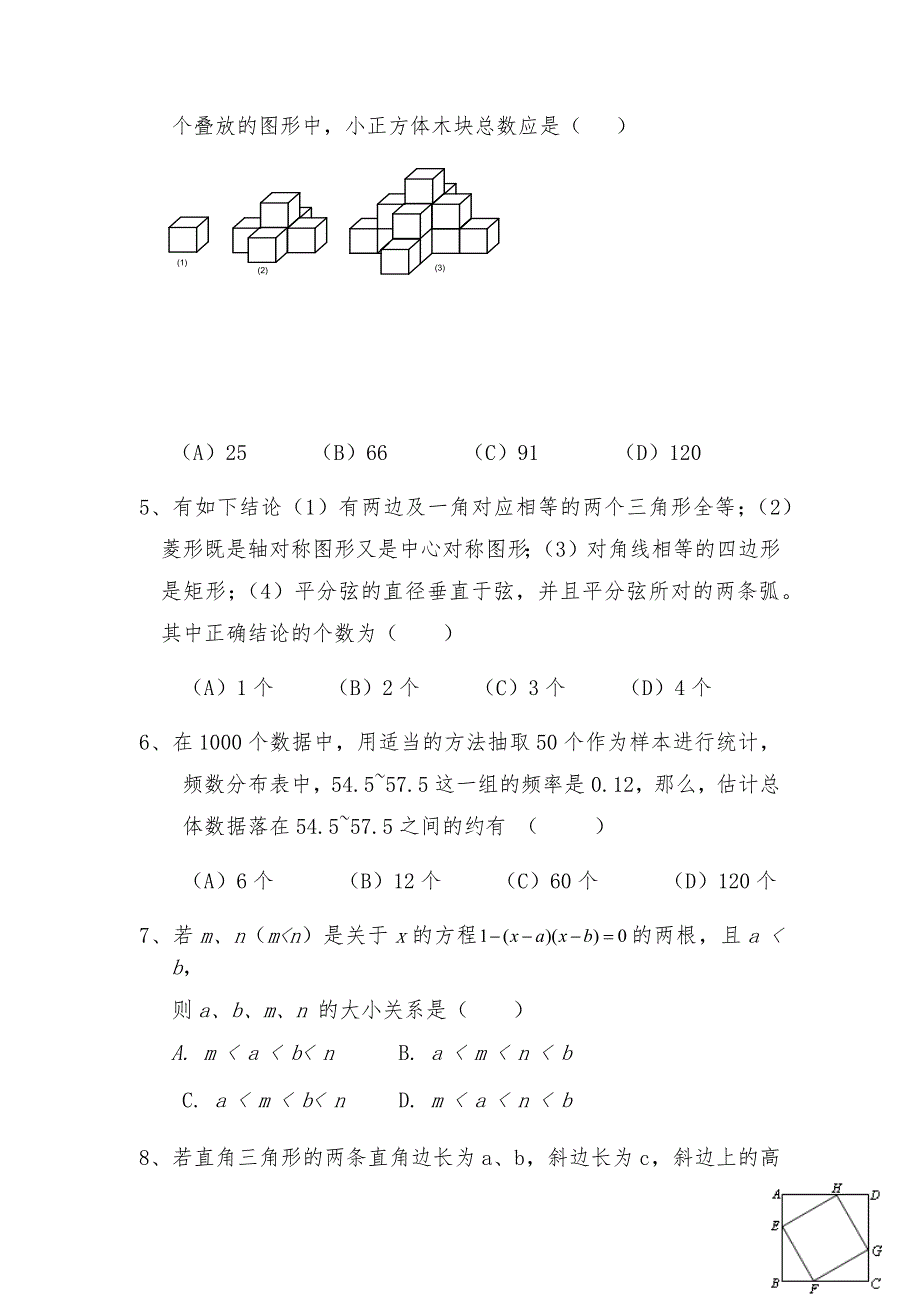 个叠放的图形中，小正方体木块总数应是（　）
(1)
(2)
(3)
（A）25　（B）66　（C）91　（D）120
5、有如下结论（1）有两边及一角对应相等的两个三角形全等；（2）
菱形既是轴对称图形又是中心对称图形；（3）对角线相等的四边形
是矩形；（4）平分弦的直径垂直于弦，并且平分弦所对的两条弧。
其中正确结论的个数为（　）
（A）1个　（B）2个　（C）3个　（D）4个
6、在1000个数据中，用适当的方法抽取50个作为样本进行统计，
频数分布表中，54.5~57.5这一组的频率是0.12，那么，估计总
体数据落在54.5~57.5之间的约有 （　）
（A）6个　（B）12个　（C）60个　（D）120个
7、若m、n（m<n）是关于x的方程1−(x−a)(x−b)=0的两根，且a <
b，
则a、b、m、n 的大小关系是（　）
A. m < a < b< n　B. a < m < n < b
C. a < m < b< n　D. m < a < n < b
8、若直角三角形的两条直角边长为a、b，斜边长为c，斜边上的高
A H D
E
G
B F C